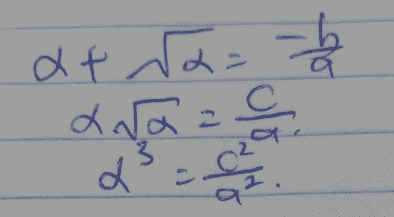 α + √α = -b/a
α√α = c/a.
α³ = c²/a².